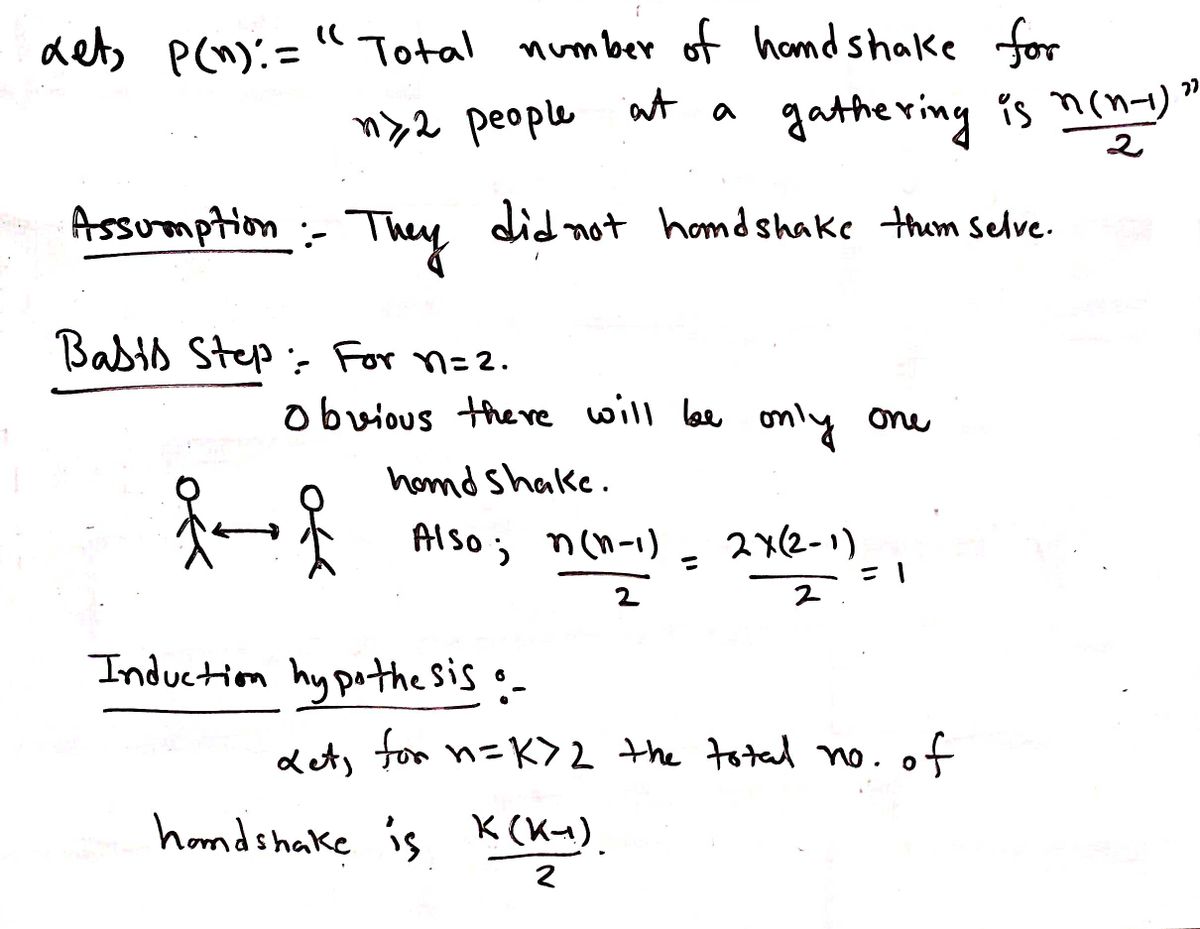 Let, P(n):= “Total number of handshake for
n≥2 people at a gathering is n(n-1)/2”
Assumption :- They did not handshake themselve.
Basis Step :- For n=2.
Obvious there will be only one
handshake.
Also; n(n-1)/2 = 2×(2-1)/2 = 1
Induction hypothesis :-
Let, for n=K>2 the total no. of
handshake is K(K-1)/2.